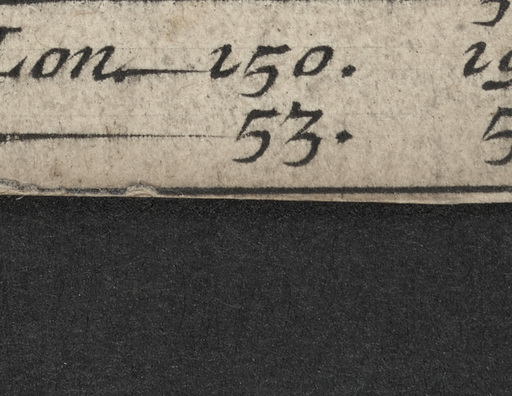 Lon. 150.
53.